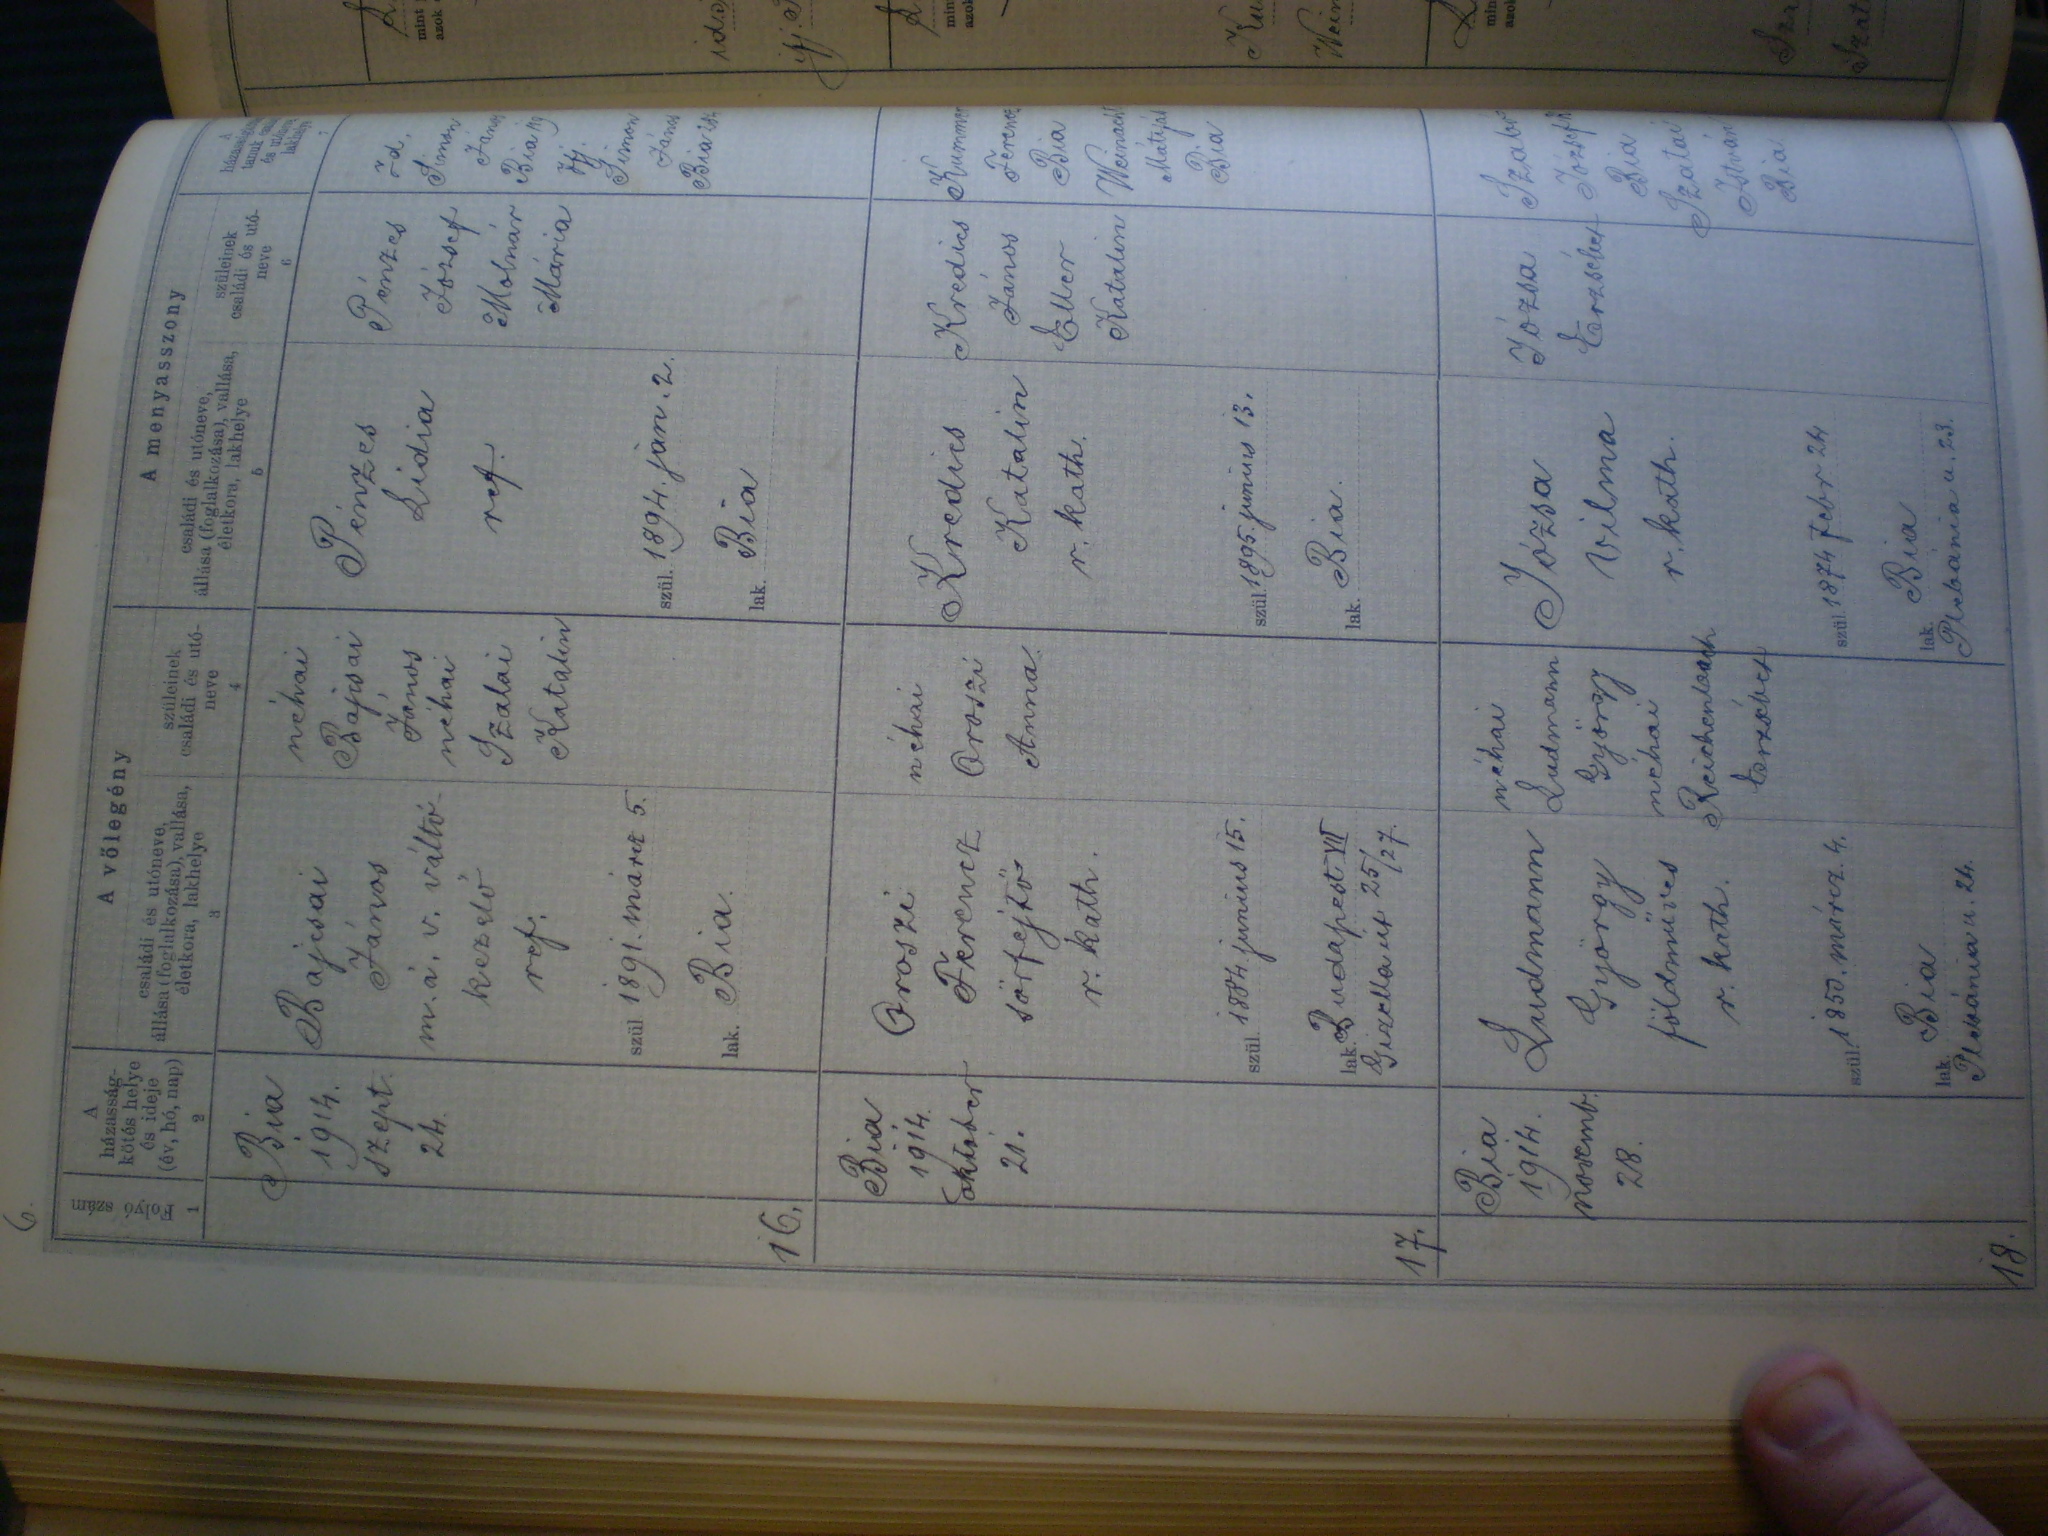 6.
A vőlegény
A menyasszony
Folyó-
szám
1
A
házasság-
kötés helye
és ideje
(év, hó, nap)
2
családi és utóneve,
állása (foglalkozása), vallása,
életkora, lakhelye
3
szüleinek
családi és utó-
neve
4
családi és utóneve,
állása (foglalkozása), vallása,
életkora, lakhelye
5
szüleinek
családi és utó-
neve
6
A
tanuk
és utóneve,
lakhelye
7
16.
Bia
1914.
szept.
24.
Bajcsai
János
m.á.v. váltó-
kezelő
ref.
szül 1891. márcz 5.
lak. Bia.
néhai
Bajcsai
János
néhai
Szalai
Katalin
Pénzes
Lidia
ref.
szül. 1894. jan. 2.
lak. Bia
Pénzes
József
Molnár
Mária
id.
Simon
János
Bia
ifj.
Simon
János
Bia
17.
Bia
1914.
október
21.
Oroszi
Ferencz
sörfejtő
r. kath.
szül. 1884. junius 15.
lak. Budapest VII
Gizella út 25/27.
néhai
Oroszi
Anna.
Kredics
Katalin
r. kath.
szül. 1895. junius 13.
lak. Bia.
Kredics
János
Eller
Katalin
Kummer
Ferencz
Bia
Mátyás
Bia
18.
Bia
1914.
novemb.
28.
Ludmann
György
földmüves
r. kath.
szül. 1850. márcz. 4.
lak. Bia
Plebánia u. 24.
néhai
Ludmann
György
néhai
Reichenbach
Erzsébet
Józsa
Vilma
r. kath.
szül. 1874 febr 24
lak. Bia
Plebánia u. 23.
Józsa
Erzsébet
Szabó
József
Bia
Szatai
István
Bia